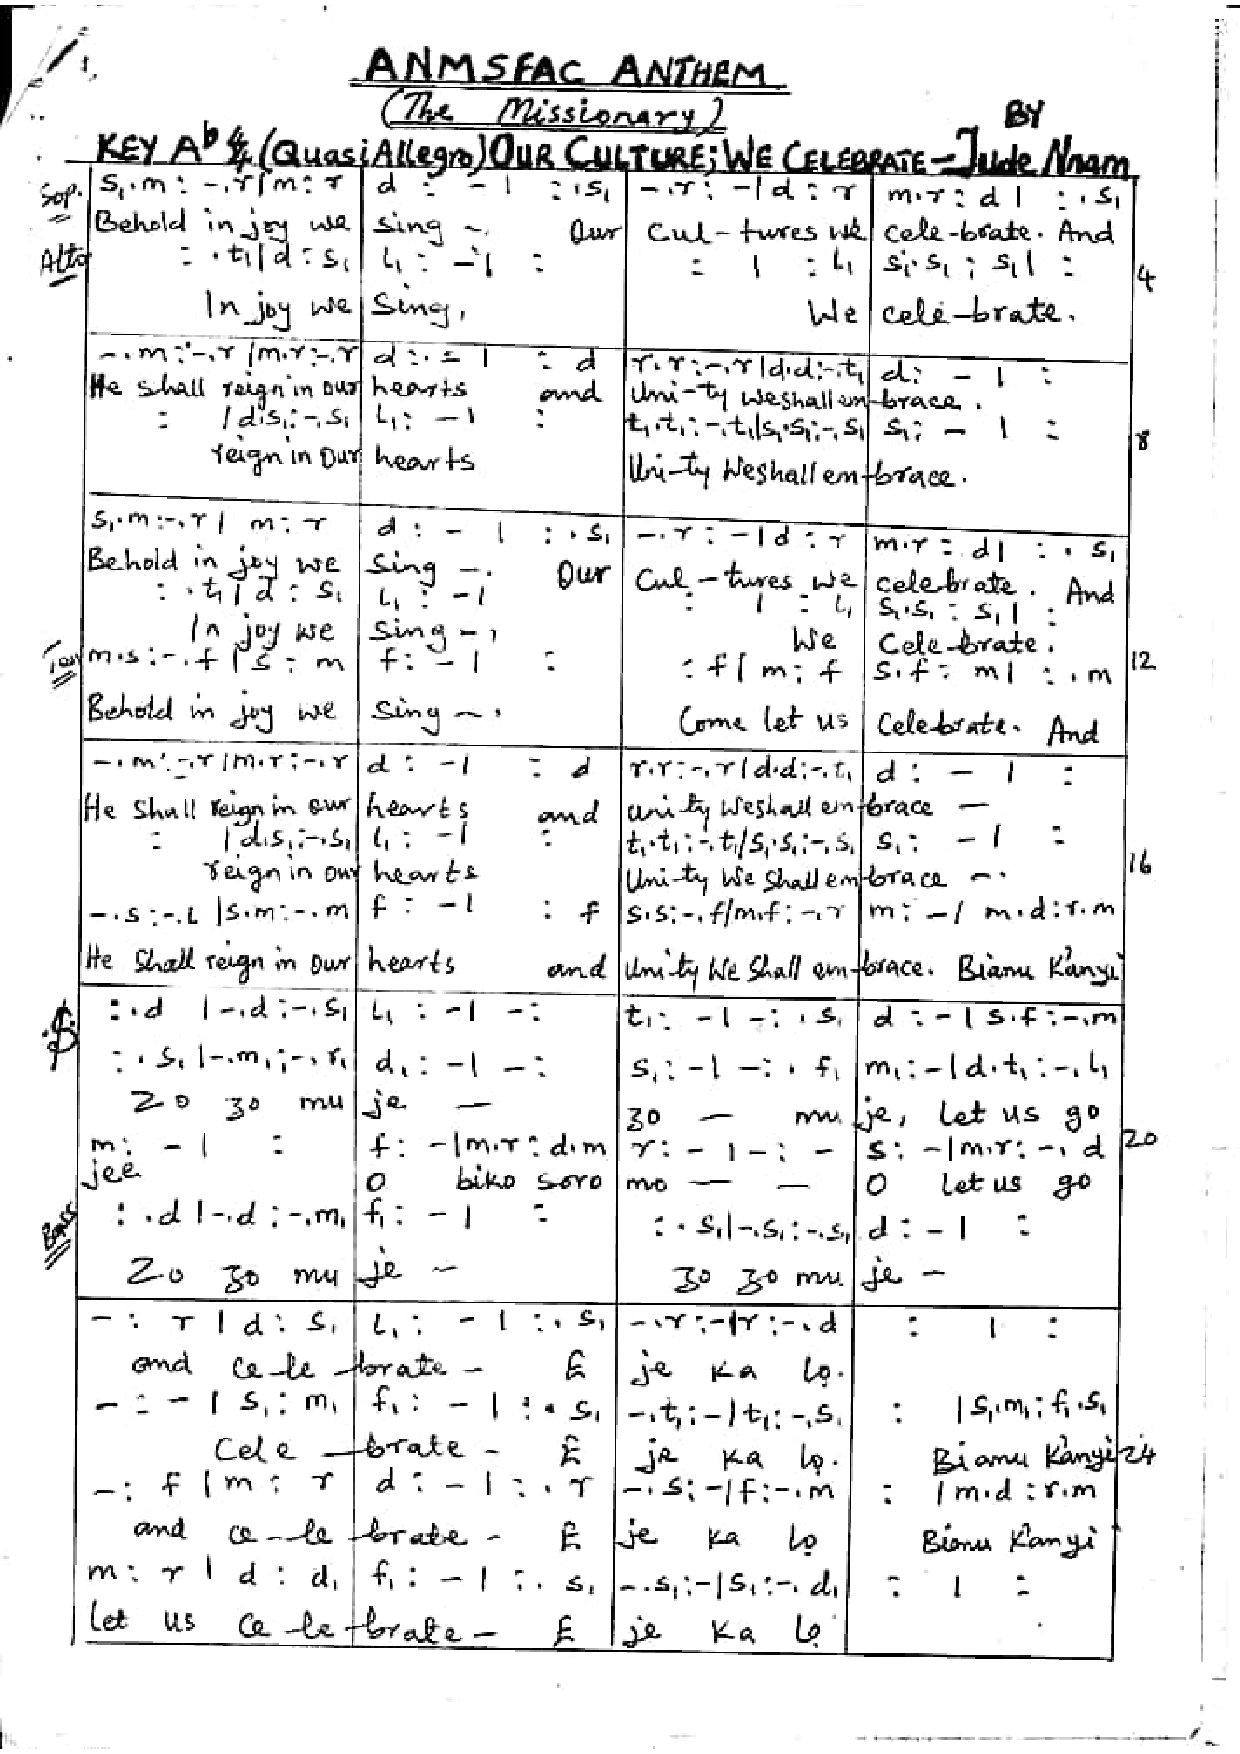 ANMSFAC ANTHEM
(The Missionary)
BY
KEY Ab (Quasi Allegro) OUR CULTURE; WE CELEBRATE - Jude Nnam
Sop. s₁.m : -.r | m : r d : - | : .s₁ -.r : - | d : r m.r : d | : .s₁
Behold in joy we sing -. Our Cul-tures we cele-brate. And
Alto : .t₁ | d : s₁ L₁ : - | : : | : L₁ s₁.s₁ : s₁ | : 4
In joy we Sing, We cele-brate.
-.m : -.r | m.r : -.r d : . = | : d r.r : -.r | d.d : -.t₁ d : - | :
He shall reign in our hearts and Uni-ty We shall em-brace.
: | d.s₁ : -.s₁ L₁ : - | : t₁.t₁ : -.t₁ | s₁.s₁ : -.s₁ s₁ : - | : 8
reign in Our hearts Uni-ty We shall em-brace.
s₁.m : -.r | m : r d : - | : .s₁ -.r : - | d : r m.r = d | : .s₁
Behold in joy we sing -. Our Cul-tures we celebrate. And
: .t₁ | d : s₁ L₁ : - | : | : L₁ s₁.s₁ : s₁ | :
In joy we sing -, We Cele-brate.
Ten m.s : -.f | s : m f : - | : : f | m : f s.f : m | : .m 12
Behold in joy we sing -. Come let us Celebrate. And
-.m : -.r | m.r : -.r d : - | : d r.r : -.r | d.d : -.t₁ d : - | :
He shall reign in our hearts and uni-ty We shall em-brace -
: | d.s₁ : -.s₁ L₁ : - | : t₁.t₁ : -.t₁ | s₁.s₁ : -.s₁ s₁ : - | : 16
reign in our hearts Uni-ty We Shall em-brace -.
-.s : -.L | s.m : -.m f : - | : f s.s : -.f | m.f : -.r m : - | m.d : r.m
He Shall reign in our hearts and Unity We Shall em-brace. Bianu Kanyi
: .d | -.d : -.s₁ L₁ : - | - : t₁ : - | - : .s₁ d : - | s.f : -.m
: .s₁ | -.m₁ : -.r₁ d₁ : - | - : s₁ : - | - : .f₁ m₁ : - | d.t₁ : -.L₁
Zo zo mu je - zo - mu je, let us go
m : - | : f : - | m.r : d.m r : - | - : - s : - | m.r : -.d 20
jee O biko soro mo - - O let us go
Bass : .d | -.d : -.m₁ f₁ : - | : : .s₁ | -.s₁ : -.s₁ d : - | :
Zo zo mu je - zo zo mu je -
- : r | d : s₁ L₁ : - | : .s₁ -.r : - | r : -.d : | :
and ce-le-brate - E je ka lọ.
- : - | s₁ : m₁ f₁ : - | : .s₁ -.t₁ : - | t₁ : -.s₁ : | s₁.m₁ : f₁.s₁
Cele-brate - E je ka lọ. Bianu Kanyi 24
- : f | m : r d : - | : .r -.s : - | f : -.m : | m.d : r.m
and ce-le-brate - E je ka lọ Bianu Kanyi
m : r | d : d₁ f₁ : - | : .s₁ -.s₁ : - | s₁ : -.d₁ : | :
let us ce-le-brate - E je ka lọ